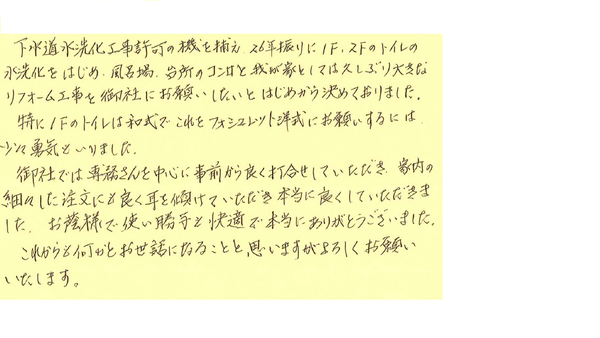 下水道水洗化工事許可の機を捕え、26年振りに1F、2Fのトイレの
水洗化をはじめ、風呂場、台所のコンロと我が家としては久しぶり大きな
リフォーム工事を御社にお願いしたいとはじめから決めておりました。
特に1Fのトイレは和式でこれをウォシュレット洋式にお願いするには
少々勇気といりました。
御社では専務さんを中心に事前から良く打合せしていただき、家内の
細々した注文にも良く耳を傾けていただき本当に良くしていただきま
した。お蔭様で使い勝手も快適で本当にありがとうございました。
これからも何かとお世話になることと思いますがよろしくお願い
いたします。